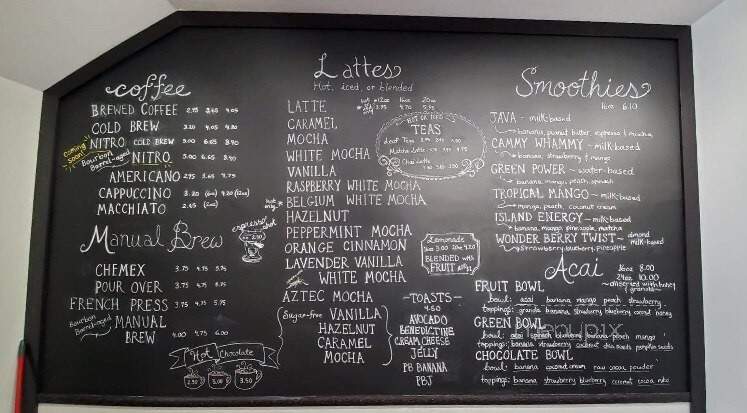 coffee
BREWED COFFEE 2.75 3.45 4.05
COLD BREW 3.20 4.05 4.80
Coming Soon!
NITRO COLD BREW 5.00 6.65 8.90
Bourbon Barrel-aged NITRO 5.00 6.65 8.90
AMERICANO 2.95 3.65 4.75
CAPPUCCINO 3.20 (6oz) 4.20 (12oz)
MACCHIATO 2.65 (2oz)
espresso shot
Manual Brew
CHEMEX 3.75 4.75 5.75
POUR OVER 3.75 4.75 5.75
FRENCH PRESS 3.75 4.75 5.75
Bourbon Barrel-aged MANUAL
BREW 4.00 4.75 6.00
Hot Chocolate
2.50 3.00 3.50
Lattes
Hot, iced, or blended
LATTE
CARAMEL
MOCHA
WHITE MOCHA
VANILLA
RASPBERRY WHITE MOCHA
hot only BELGIUM WHITE MOCHA
HAZELNUT
PEPPERMINT MOCHA
ORANGE CINNAMON
LAVENDER VANILLA
WHITE MOCHA
AZTEC MOCHA
Sugar-free VANILLA
HAZELNUT
CARAMEL
MOCHA
12oz 16oz 20oz
HOT OR ICED
TEAS
Loose Teas
Matcha Latte
Chai Latte
Lemonade
16oz 3.00 20oz 4.20
BLENDED with
FRUIT
-TOASTS-
4.50
AVOCADO
BENEDICTINE
CREAM CHEESE
JELLY
PB BANANA
PBJ
Smoothies
16oz 6.10
JAVA - milk-based
banana, peanut butter, espresso & mocha
CAMMY WHAMMY - milk-based
banana, strawberry & mango
GREEN POWER - water-based
banana, mango, peach, spinach
TROPICAL MANGO - milk-based
mango, peach, coconut cream
ISLAND ENERGY - milk-based
banana, mango, pineapple, matcha
WONDER BERRY TWIST - almond milk-based
strawberry, blueberry, pineapple
Acai
16oz 8.00
24oz 10.00
FRUIT BOWL ~all served with honey & granola~
bowl: acai banana mango peach strawberry
toppings: granola banana strawberry blueberry coconut honey
GREEN BOWL
bowl: acai spinach blueberry banana peach mango
toppings: banana strawberry coconut chia seeds pumpkin seeds
CHOCOLATE BOWL
bowl: banana coconut cream raw cacao powder
toppings: banana strawberry blueberry coconut cacao nibs
menupix